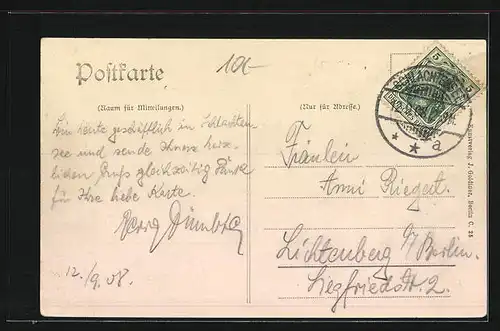 10.-
Postkarte
(Raum für Mitteilungen.)
(Nur für Adresse.)
Bin heute geschäftlich in Schlachten-
see und sende Ihnen herz-
lichen Gruß gleichzeitig Dank
für Ihre liebe Karte.
Georg
12./9.08.
Fräulein
Anni Riegert.
Lichtenberg b/Berlin.
Siegfriedstr. 2.
SCHLACHTENSEE
* * a
5
5
Kunstverlag J. Goldiner, Berlin C. 25